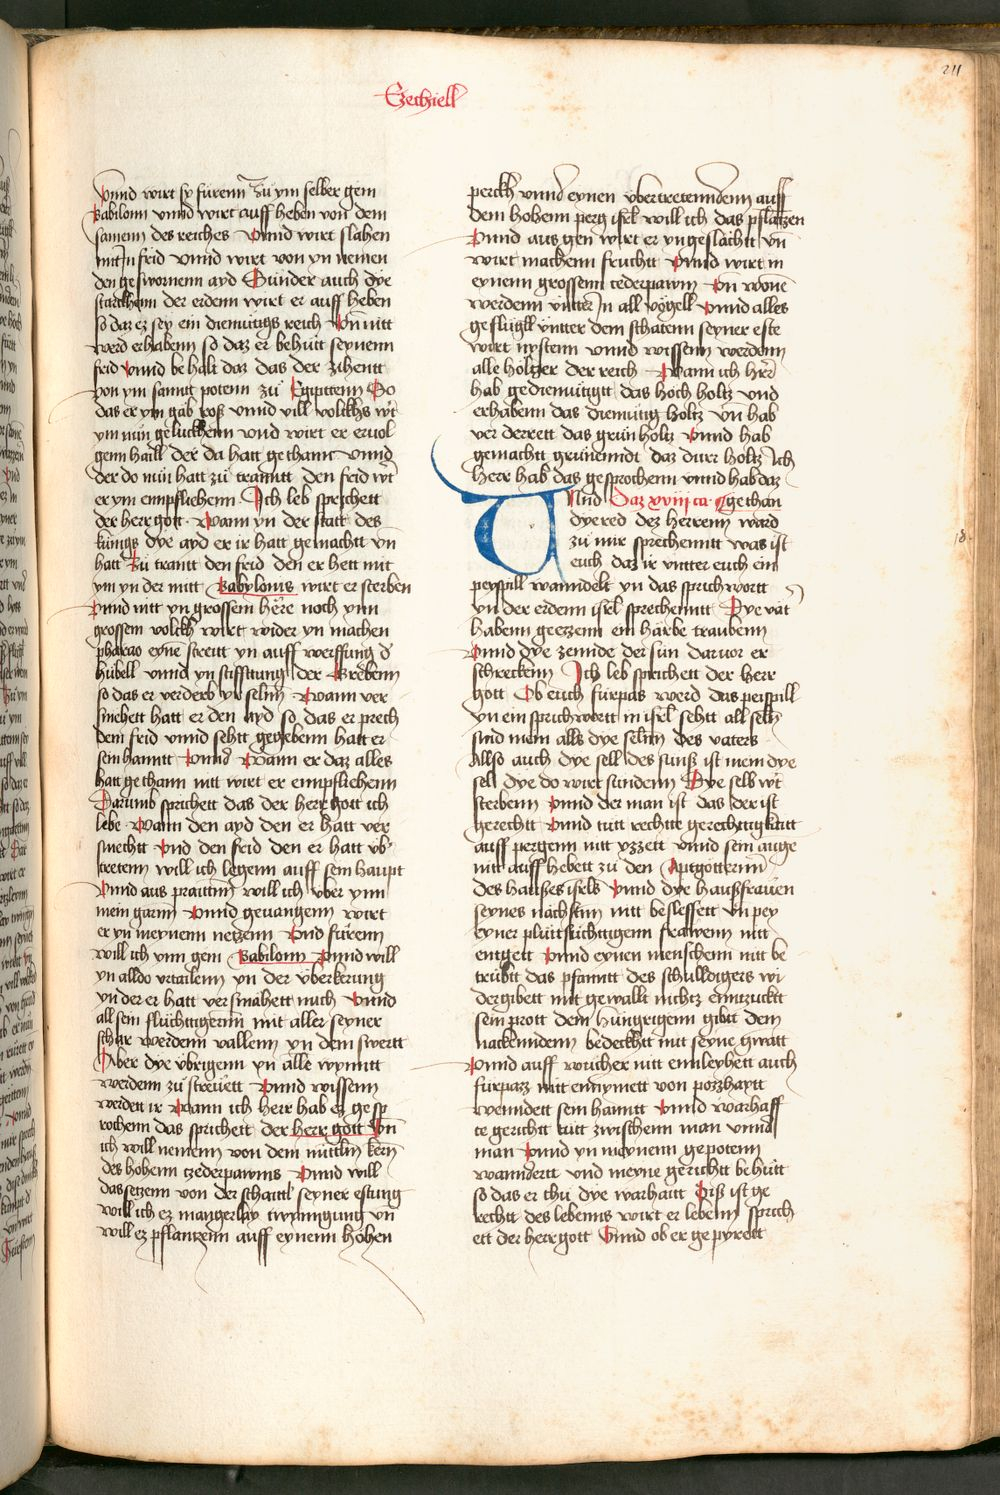 211
Ezechiell
Vnnd wirt sy fürenn zu ym selber gein
Babilonn vnnd wirt auff heben von dem
samenn des reiches Vnnd wirt slahen
mit Im frid vnnd wirt von yn nemen
den geswornenn ayd Sunder auch dye
starckhenn der erdenn wirt er auff heben
so daz ez sey ein diemütigs reich Vn nitt
werd erhabenn so daz er behütt seynenn
frid Vnnd be halt daz das der zihentt
von ym sanntt potenn zu Egipttenn So
das er ym gäb roß vnnd vill volckhs wirt
ym nün geluckhenn vnd wirt er ervol
genn haill der da hatt gethann vnnd
der do nün hatt zu tranntt den frid wirt
er ym ennpfliehenn Ich leb sprichett
der herr gott Wann yn der statt des
künigs dye ayd er ir hatt gemachtt vn
hatt zu trantt den frid den er hett mit
ym yn der mitt Babylonis wirt er sterben
Vnnd nitt yn grossem here noch ynn
grossem volckh wirt wider yn machen
pharao eyne streitt yn auff werffung d
hübell vnnd yn stifftung der Grebenn
so das er verderb vil selnn Wann ver
smehett hatt er den ayd so das er prech
dem frid vnnd sehtt gegebenn hatt er
sein hanntt Vnnd Wann er daz alles
hatt gethann nitt wirt er ennpfliehenn
Darumb sprichett das der herr gott ich
lebe Wann den ayd den er hatt ver
smechtt Vnd den frid den er hatt vb
tretenn will ich legenn auff sein haupt
Vnnd aus praittnn will ich vber ynn
mein garnn Vnnd geuangenn wirt
er yn meynenn netzenn Vnd fürenn
will ich ynn gein Babilonn Vnnd will
yn alldo vrtailenn yn der vberkerung
yn der er hatt ver smahett mich Vnnd
all sein fluchttigernn mit aller seyner
schar werdenn vallenn yn dem swertt
Aber dye vbrigenn yn alle wynntt
werdenn zu streuett Vnnd wissenn
werdett ir Wann ich herr hab ez gesp
rochenn das sprichett der herr gott Vn
ich will nemenn von dem mittlm kern
des hohenn tzederpawms Vnnd will
das setzenn von der schaittl seyner estung
will ich ez mangerlay twynngung vn
will ez pflantzenn auff eynenn höhen
perckh vnnd eynen vbertretenndenn auff
dem hohenn perg isrl will ich das pflantzen
Vnnd aus gen wirt er yn geslachtt vn
wirt machenn fruchtt Vnnd wirt in
eynenn grossenn cederpawm Vn wone
werdenn vntter In all vögell Vnnd alles
geflügll vntter dem schatenn seyner este
wirt nystenn vnnd wissenn werdenn
alle höltzer der reich Wann ich herr
hab gediemüttigtt das hoch holtz vnd
erhabenn das diemütig holtz Vn hab
ver derrett das grün holtz Vnnd hab
gemachtt grünenndt daz durr holtz Ich
herr hab das gesprochenn vnnd hab daz
Vnnd Daz xviij ca gethan
dye red dez herrenn ward
zu mir sprechenntt was ist
euch daz ir vntter euch ein
peyspill wanndelt yn das sprichwortt
yn der erdenn isrl sprechenntt Dye vät
habenn geezzenn ein härbe traubenn
Vnnd dye zennde der sün daruor er
schreckenn Ich leb sprichett der herr
gott Ob euch fürpas werd das peispill
yn ein sprichwortt in isrl sehtt all seln
sind mein alls dye selnn des vaters
Allso auch dye sell des sunß ist mein dye
sell dye do wirt sündenn Dye selb wirt
sterbenn Vnnd der man ist das der ist
gerechtt Vnnd tutt rechtte gerechtigkaitt
auff pergenn nitt yzzett vnnd sein auge
nitt auff hebett zu den Aptgötternn
des haußes isrls Vnnd dye haußfrauen
seynes nächstnn nitt besleffett Vn pey
eyner plüttsüchttigenn frawenn nitt
entgett Vnnd eynen menschenn nitt be
trübtt das pfanntt des schulldigers wi
dergibett mit gewallt nichtz enntzucktt
sein prott dem hungrigenn gibtt dem
nackenndenn bedeckhtt mit seyne gwatt
Vnnd auff wucher nitt ennleyhett auch
fürpazz nitt ennymett von pozzhaytt
wenndett sein hanntt Vnnd warhaff
te gerichtt tutt zwischenn man vnnd
man Vnnd yn meynenn gepotenn
wanndertt vnd meyne gerichtt behütt
so das er thü dye warhaitt Diß ist ge
rechtt des lebenns wirt er lebenn sprich
ett der herr gott Vnnd ob er ge pyrett
18